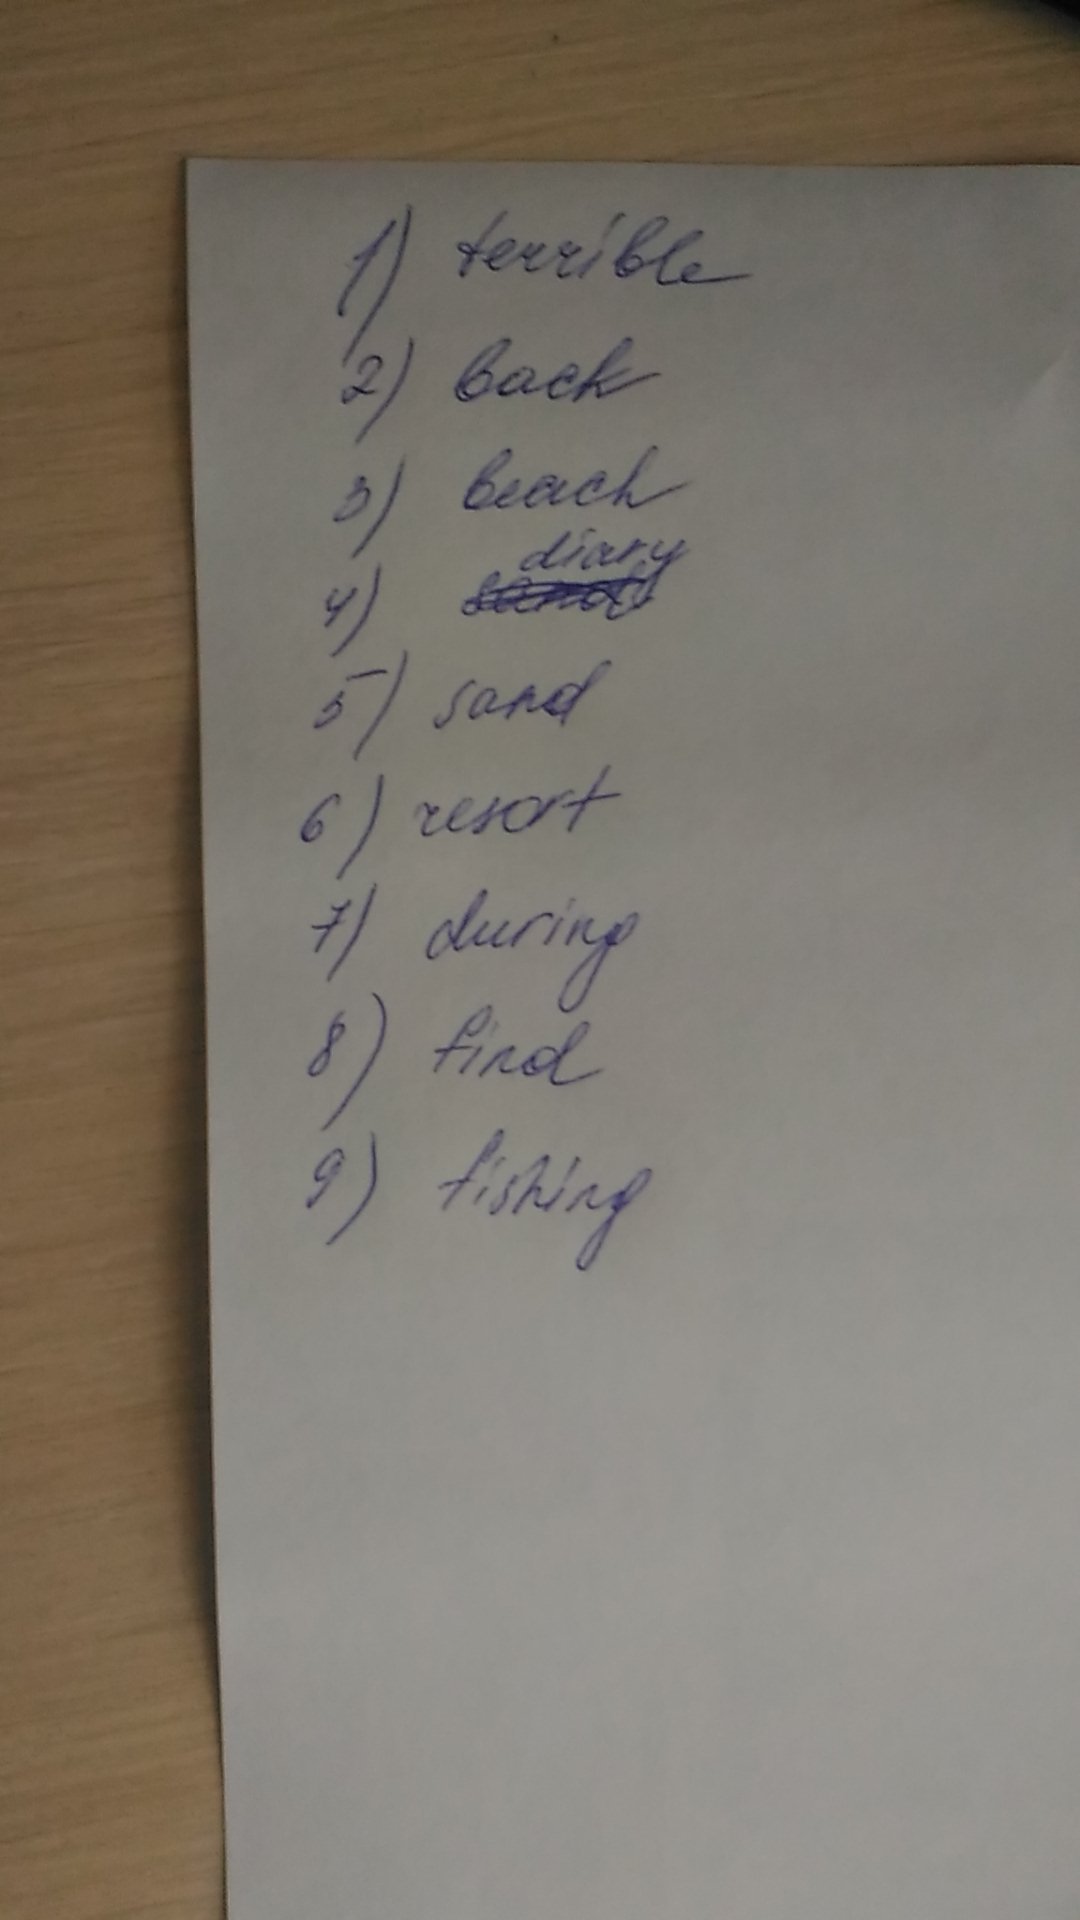 1) terrible
2) back
3) beach
4) diary
5) sand
6) resort
7) during
8) find
9) fishing